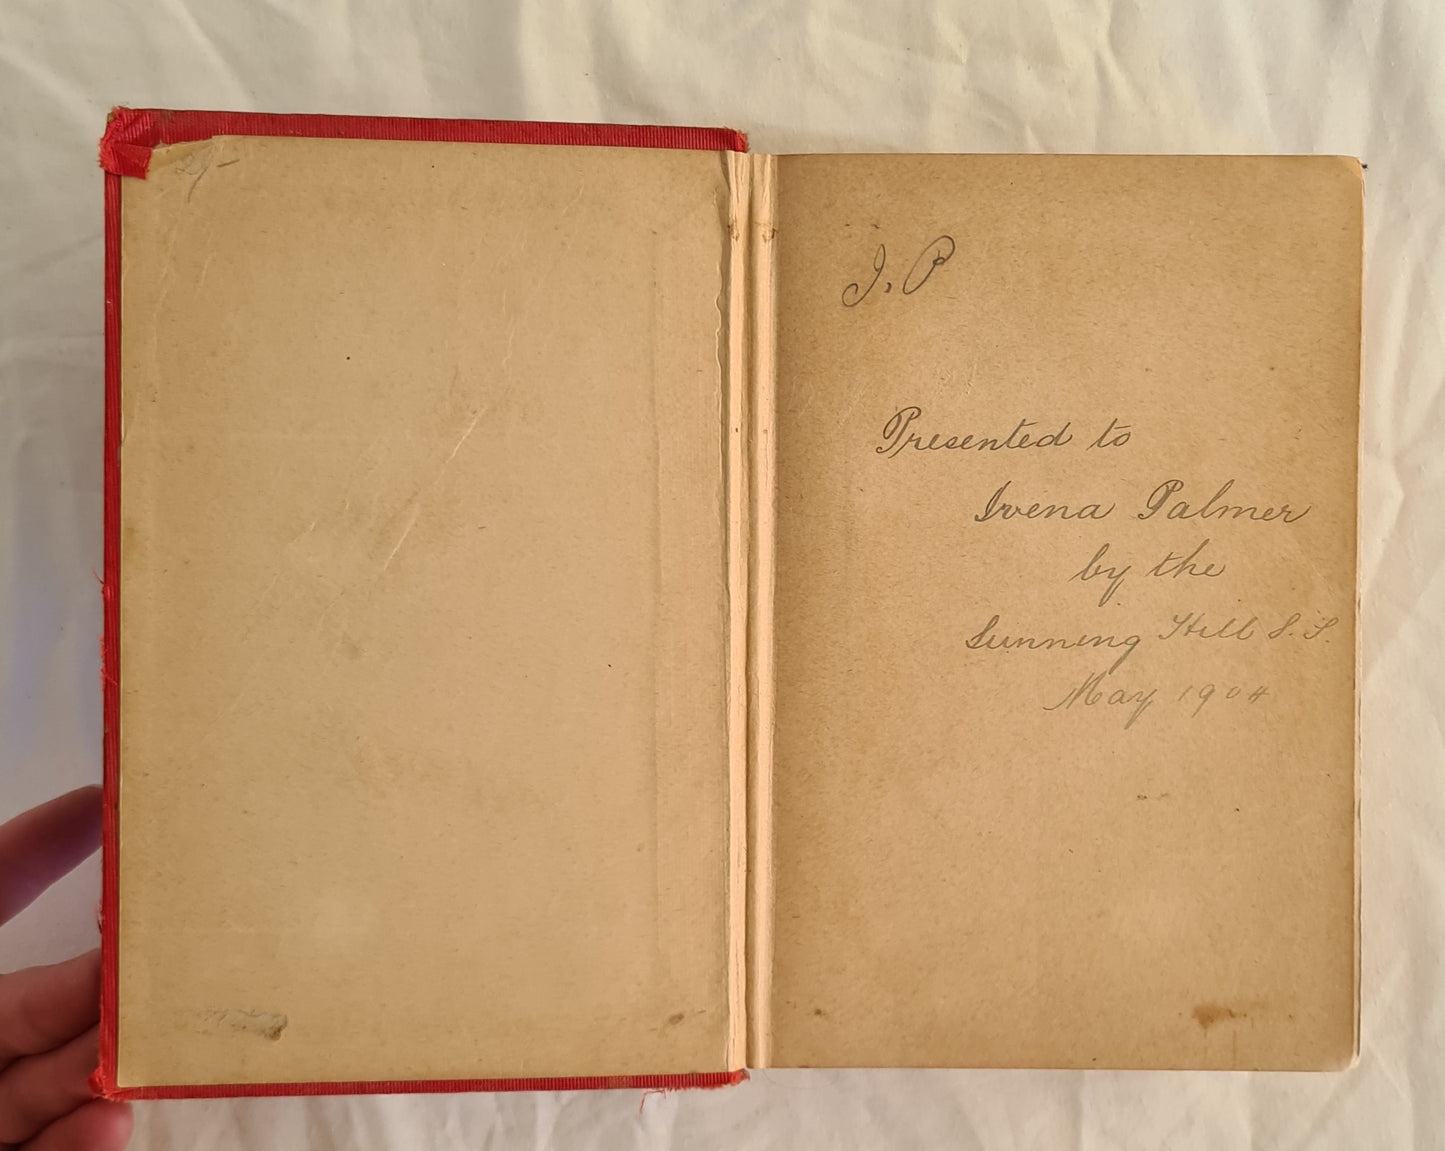 2/-
I. P
Presented to
Ivena Palmer
by the
Sunning Hill S. S.
May 1904